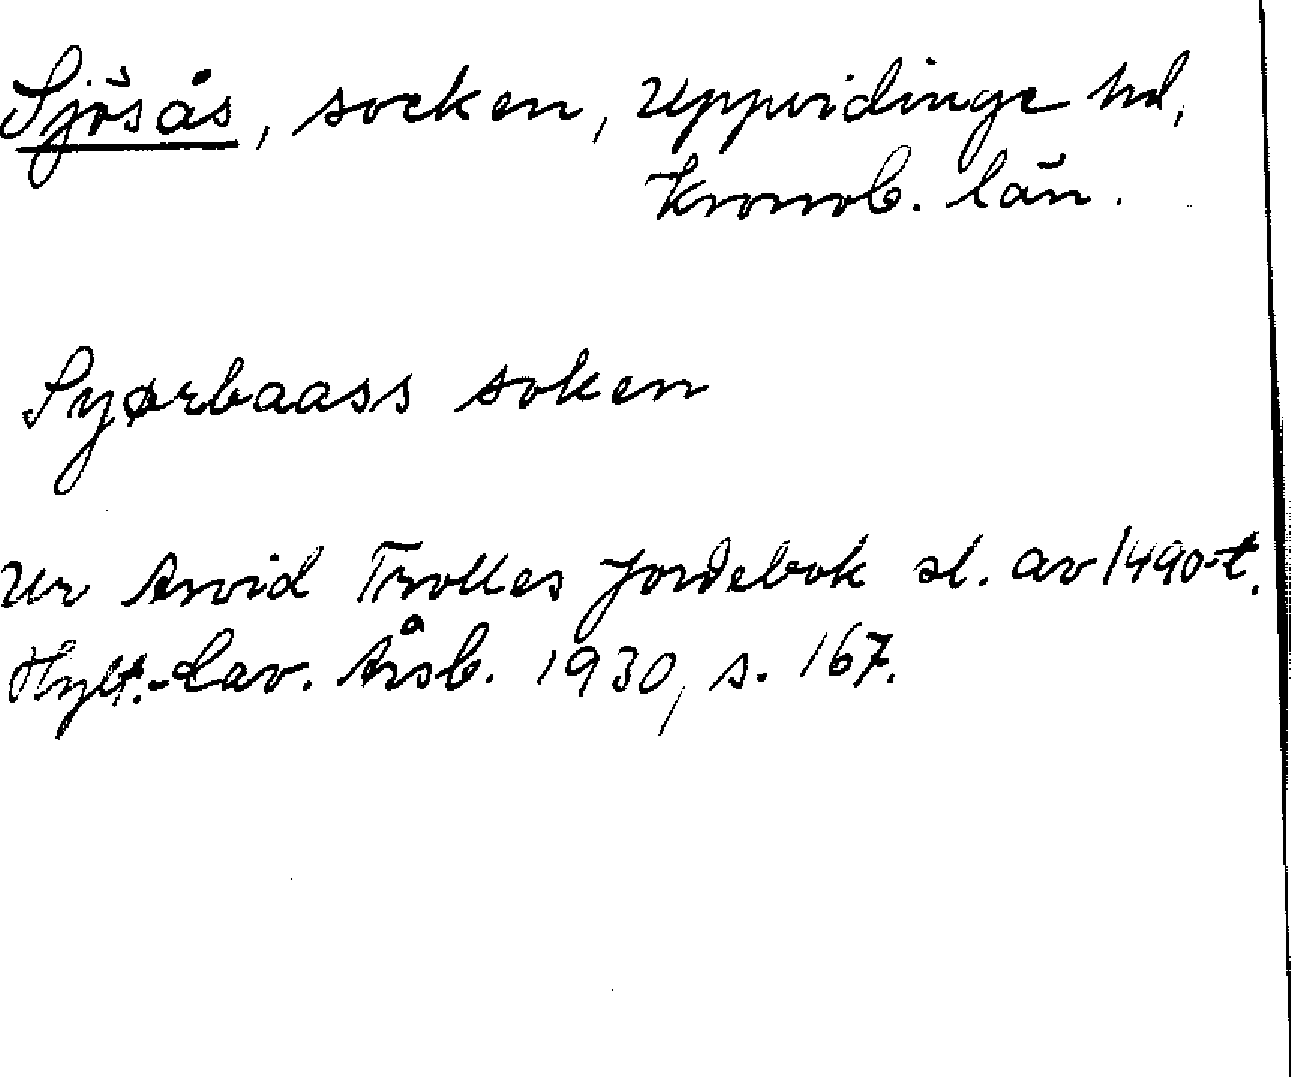 Sjösås, socken, Uppvidinge hd,
Kronob. län.
Syørbaass soken
Ur Arvid Trolles Jordebok sl. av 1490-t.
Hylt.-Cav. Årsb. 1930, s. 167.